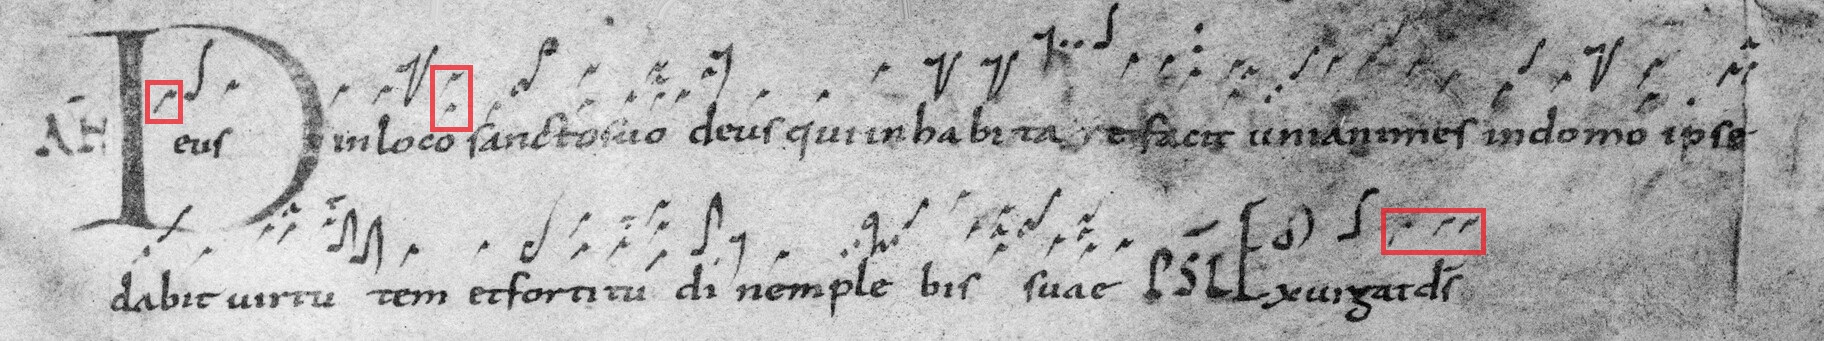 AÑ Deus in loco sancto suo deus qui inhabita et facit unianimes in domo ipse
dabit uirtutem et fortitudinem plebis suae PSL Exurgat ds̄